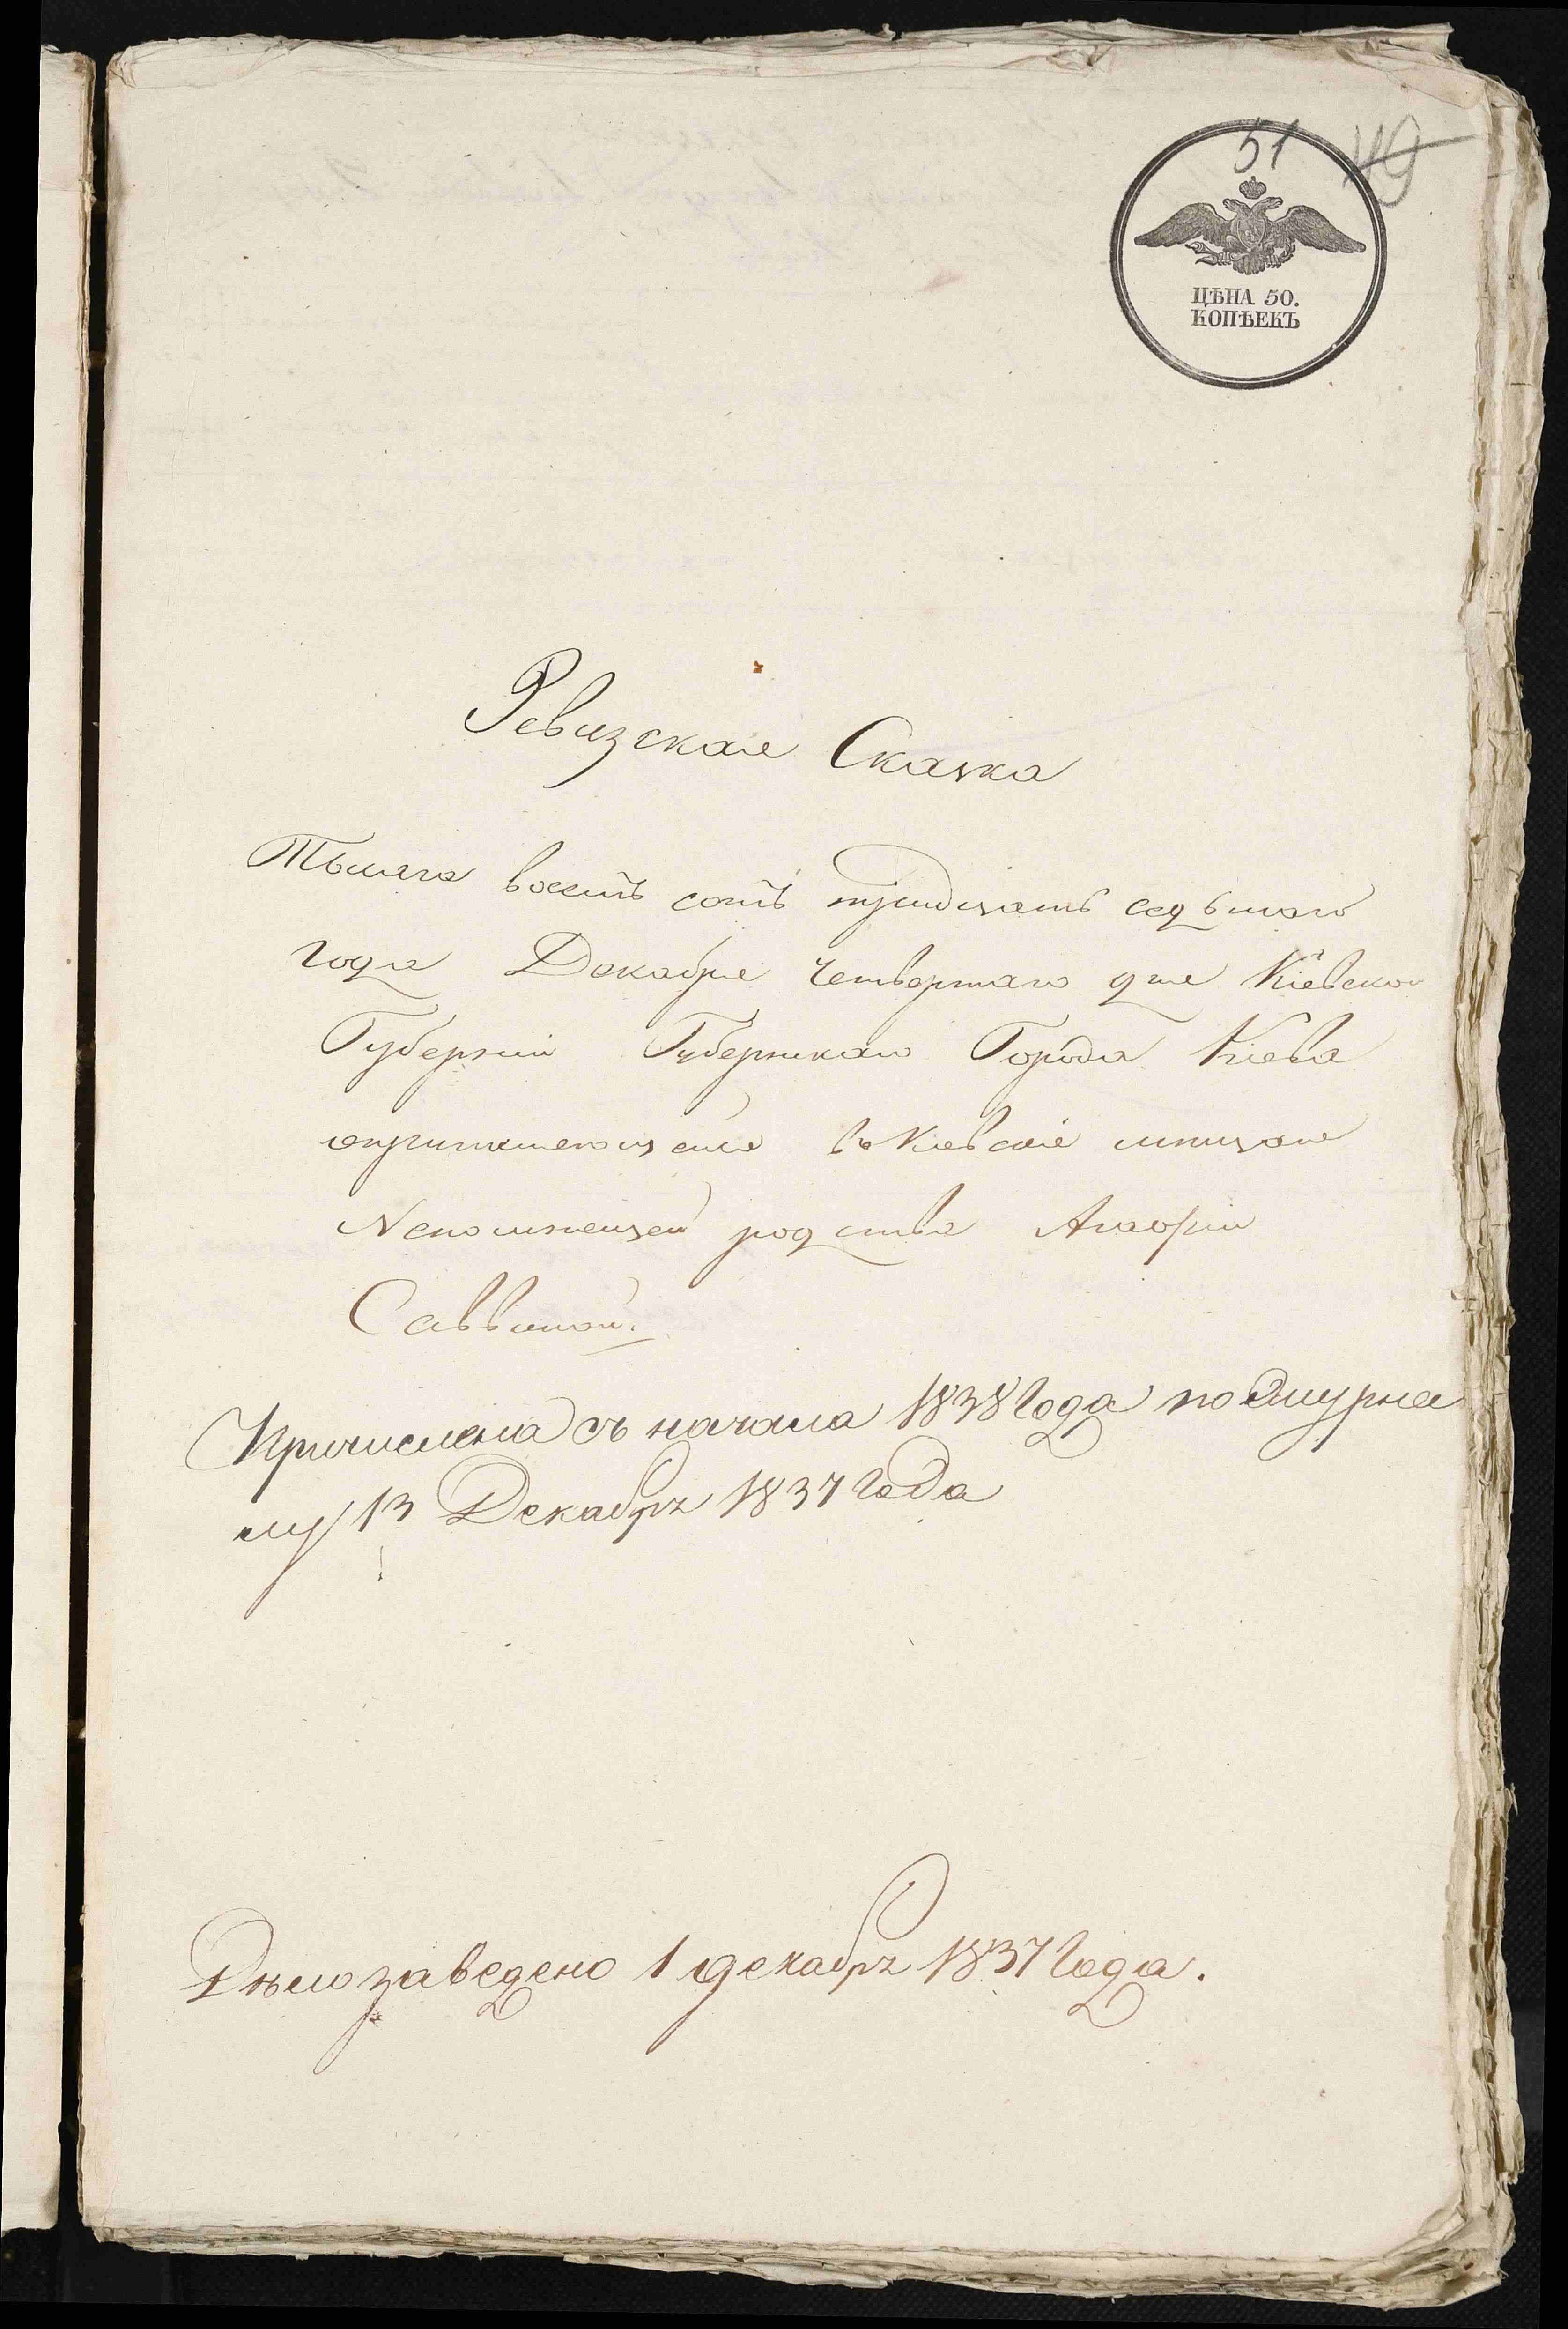 51 49
ЦѢНА 50.
КОПѢЕКЪ
Ревизская Сказка
Тысяча восемь сотъ тридцать седьмаго
года Декабря четвертаго дня Кіевской
Губерніи Губернскаго Города Кіева
о въ Кіевскіе мещане
Непомнящей родства
Саввиной.
Причислена съ начала 1838 года по журна
лу 13 Декабря 1837 года
Дѣло заведено 1 декабря 1837 года.